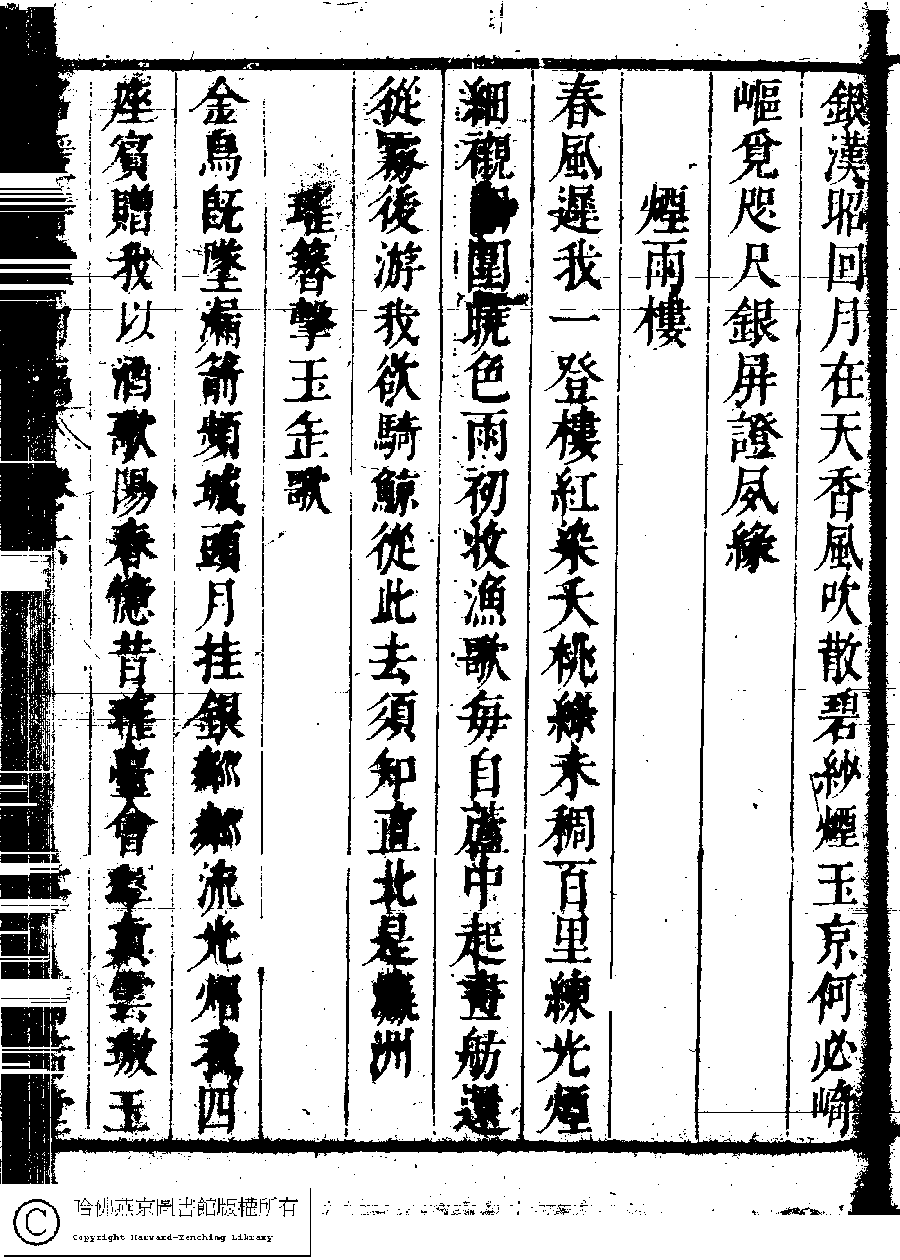 銀漢昭回月在天香風吹散碧紗煙玉京何必崎
嶇覓咫尺銀屏證夙緣
煙雨樓
春風遲我一登樓紅染夭桃綠未稠百里練光煙
細襯四圍曉色雨初收漁歌每自蘆中起畫舫還
從霧後游我欲騎鯨從此去須知直北是瀛洲
瑤簪擊玉缶歌
金烏既墜漏箭頻城頭月挂銀鄰鄰流光炤我四
座賓贈我以酒歌陽春憶昔瑤臺會羣真雲璈玉
哈佛燕京圖書館版權所有
Copyright Harvard-Yenching Library